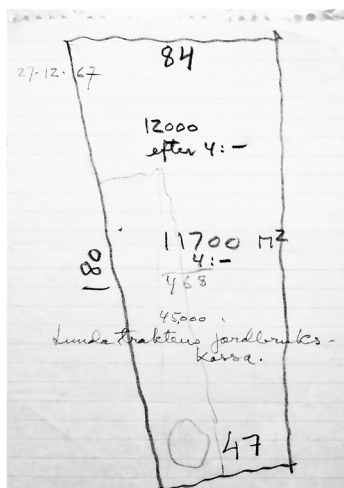 84
27-12-67
12000
efter 4:-
180
11700 M²
4:-
468
45,000
Lundatraktens jordbruks-
kassa.
47